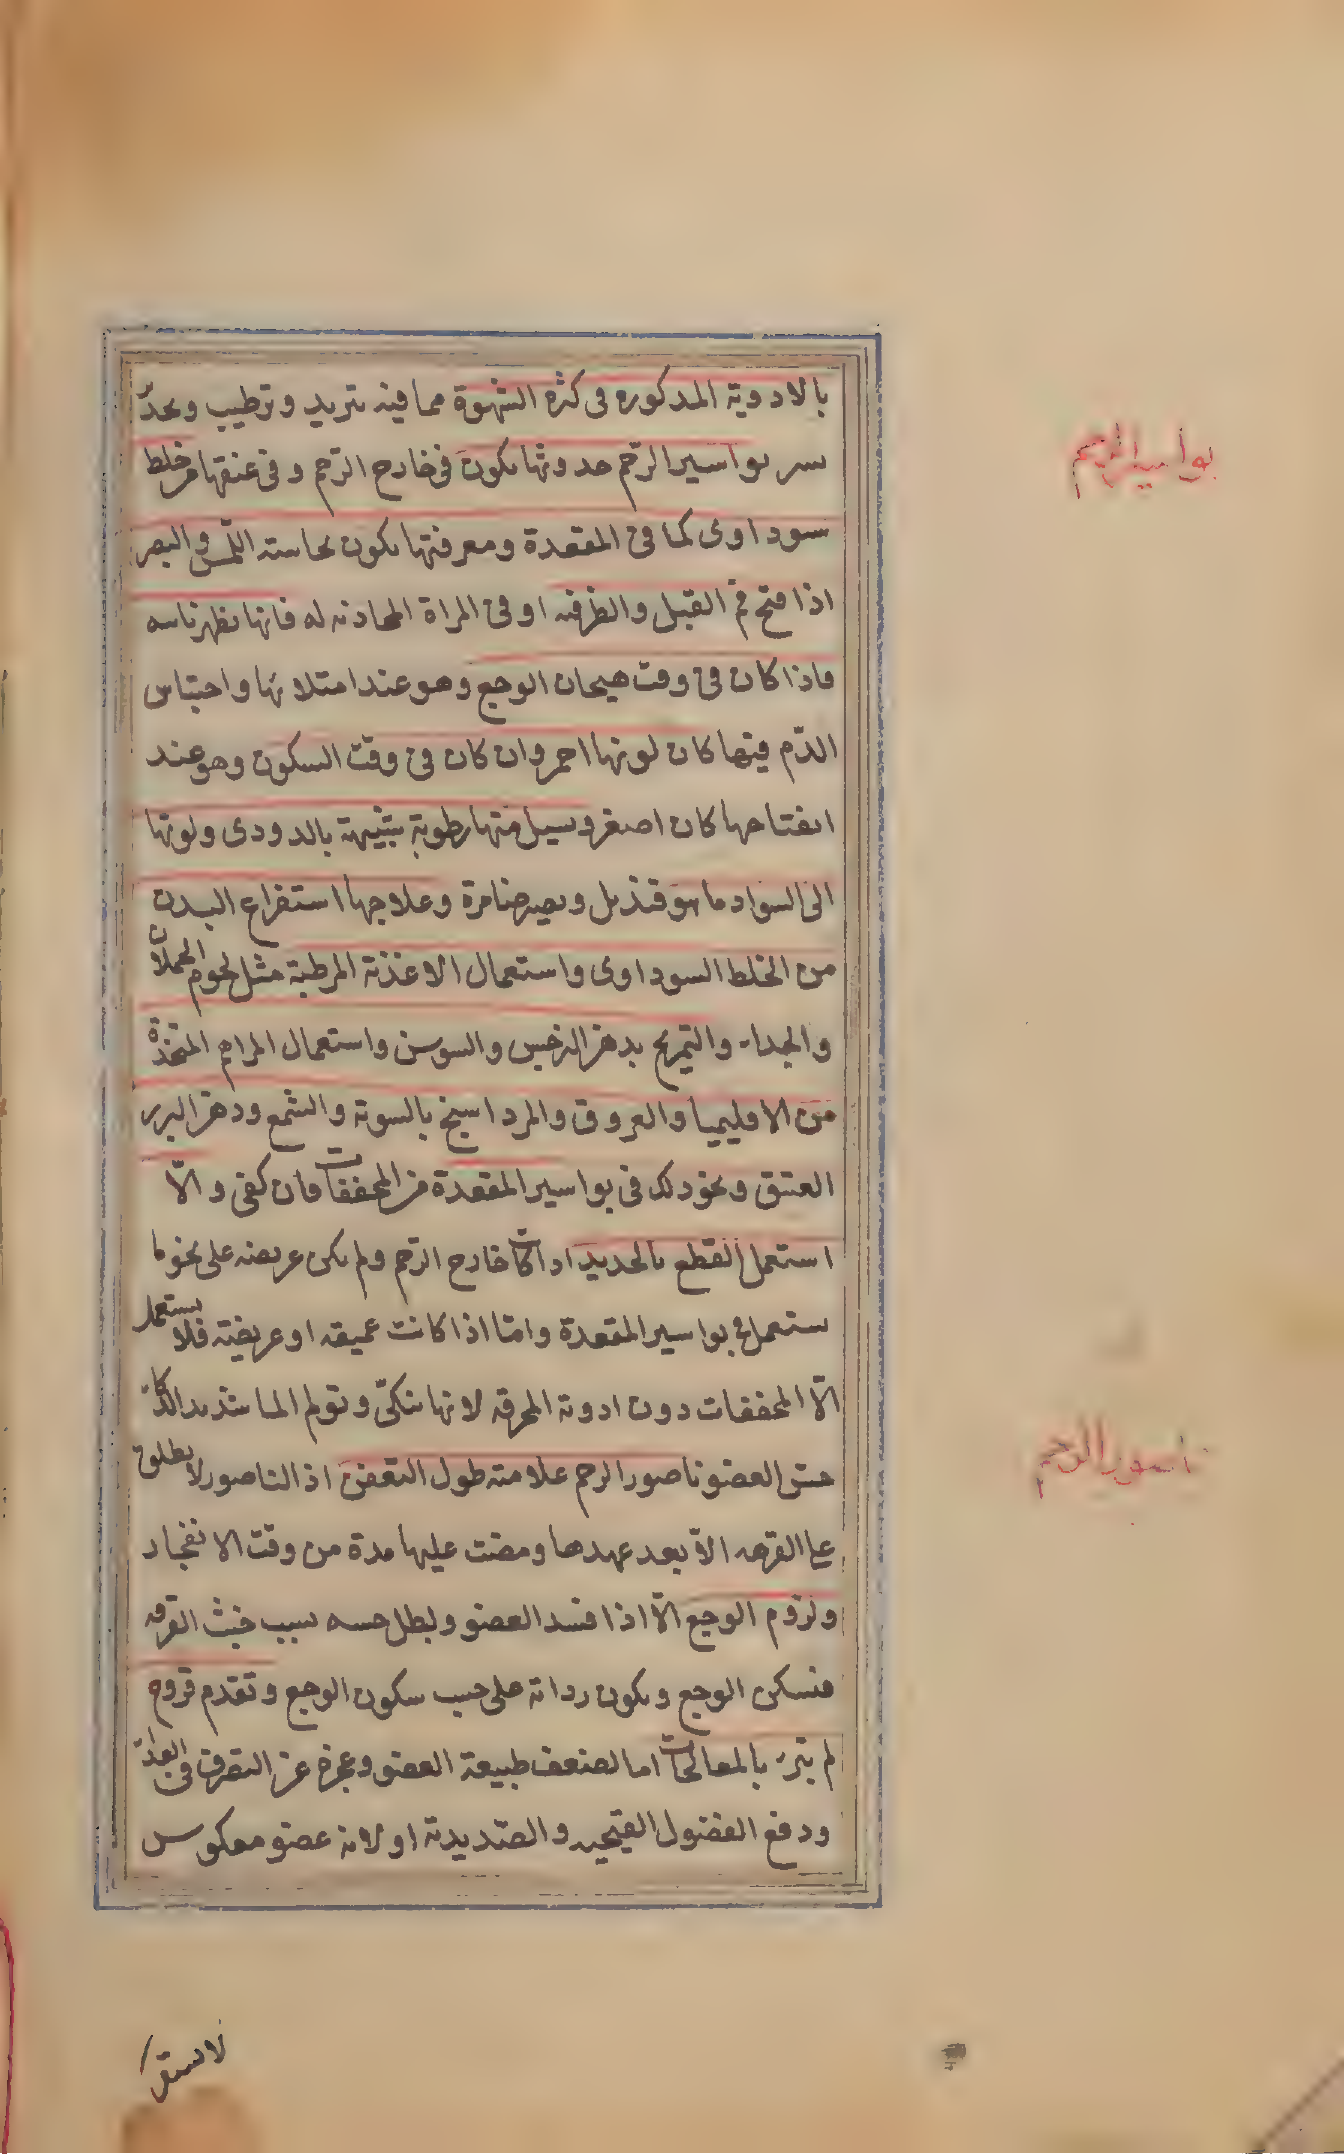 بالادوية المذكوره فى كثره الشهوة مما فيه تبريد وترطيب وتخدير
بواسير الرحم
بواسير الرحم حدوثها يكون فى خارج الرحم و فى عنقها من خلط
سوداوى كما فى المقعدة ومعرفتها يكون بحاسته اللمس والبصر
اذا فتح فم القبل والنظر فيه او فى المراة المحاذيه له فانها تظهر
فاذا كان فى وقت هيجان الوجع وهو عند امتلائها واحتباس
الدّم فيها كان لونها احمر وان كان فى وقت السكون وهو عند
انفتاحها كان اصغر وتسيل منها رطوبة شبيهة بالدودى ولونها
الى السواد ما هو قد ذبل ويصير ضامرة وعلاجها استفراغ البدن
من الخلط السوداوى واستعمال الاغذية المرطبة مثل لحوم الحملان
والجداء والتمريخ بدهن النرجس والسوسن واستعمال المراهم المتخذة
من الاقليميا والعروق والمرداسنج بالسوية والشمع ودهن البزر
العتيق ونحو ذلك فى بواسير المقعدة من المجففات فان كفى والّا
استعمل القطع بالحديد اذا كانت خارج الرّحم ولم يكن عريضه على نحو ما
يستعمل فى بواسير المقعدة وامّا اذا كانت عميقه او عريضة فلا يستعمل
الّا المجففات دون ادوية المحرقه لانها تنكئ وتولم الما شديدا لذكاء
ناسور الرحم
حسّ العضو ناصور الرحم علامته طول التعفن اذ الناصور لا يطلق
على القرحه الا بعد عهدها ومضت عليها مدة من وقت الانفجار
ولزوم الوجع الّا اذا فسد العضو وبطل حسه بسبب خبث القرحه
فيسكن الوجع ويكون رداته على حسب سكون الوجع وتقدم قروح
لم يتبرء بالمعالجات اما لضعف طبيعة العضو وعجزه عن التصرف فى الغذاء
ودفع الفضول القيحيه والصديدية او لانه عضو معكوس
لا يستقر